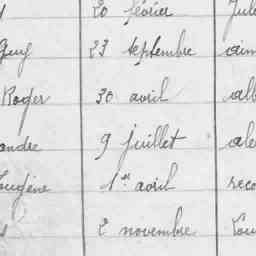 20 février Jule
Guy 23 septembre aim
Roger 30 avril alb
andre 9 juillet ale
Eugène 1er avril reco
2 novembre Lou